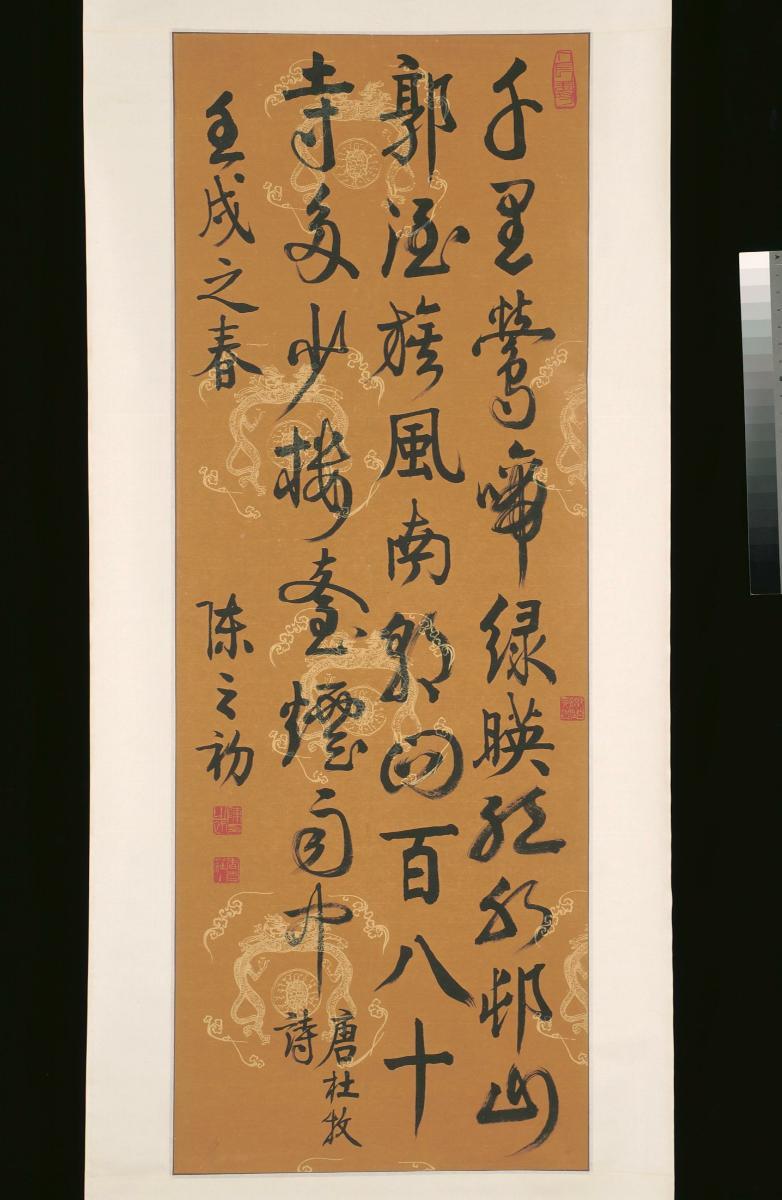 千里鶯啼緑暎紅水邨山
郭酒旗風南朝四百八十
寺多少樓臺煙雨中
唐杜牧
詩
壬戌之春 陳之初